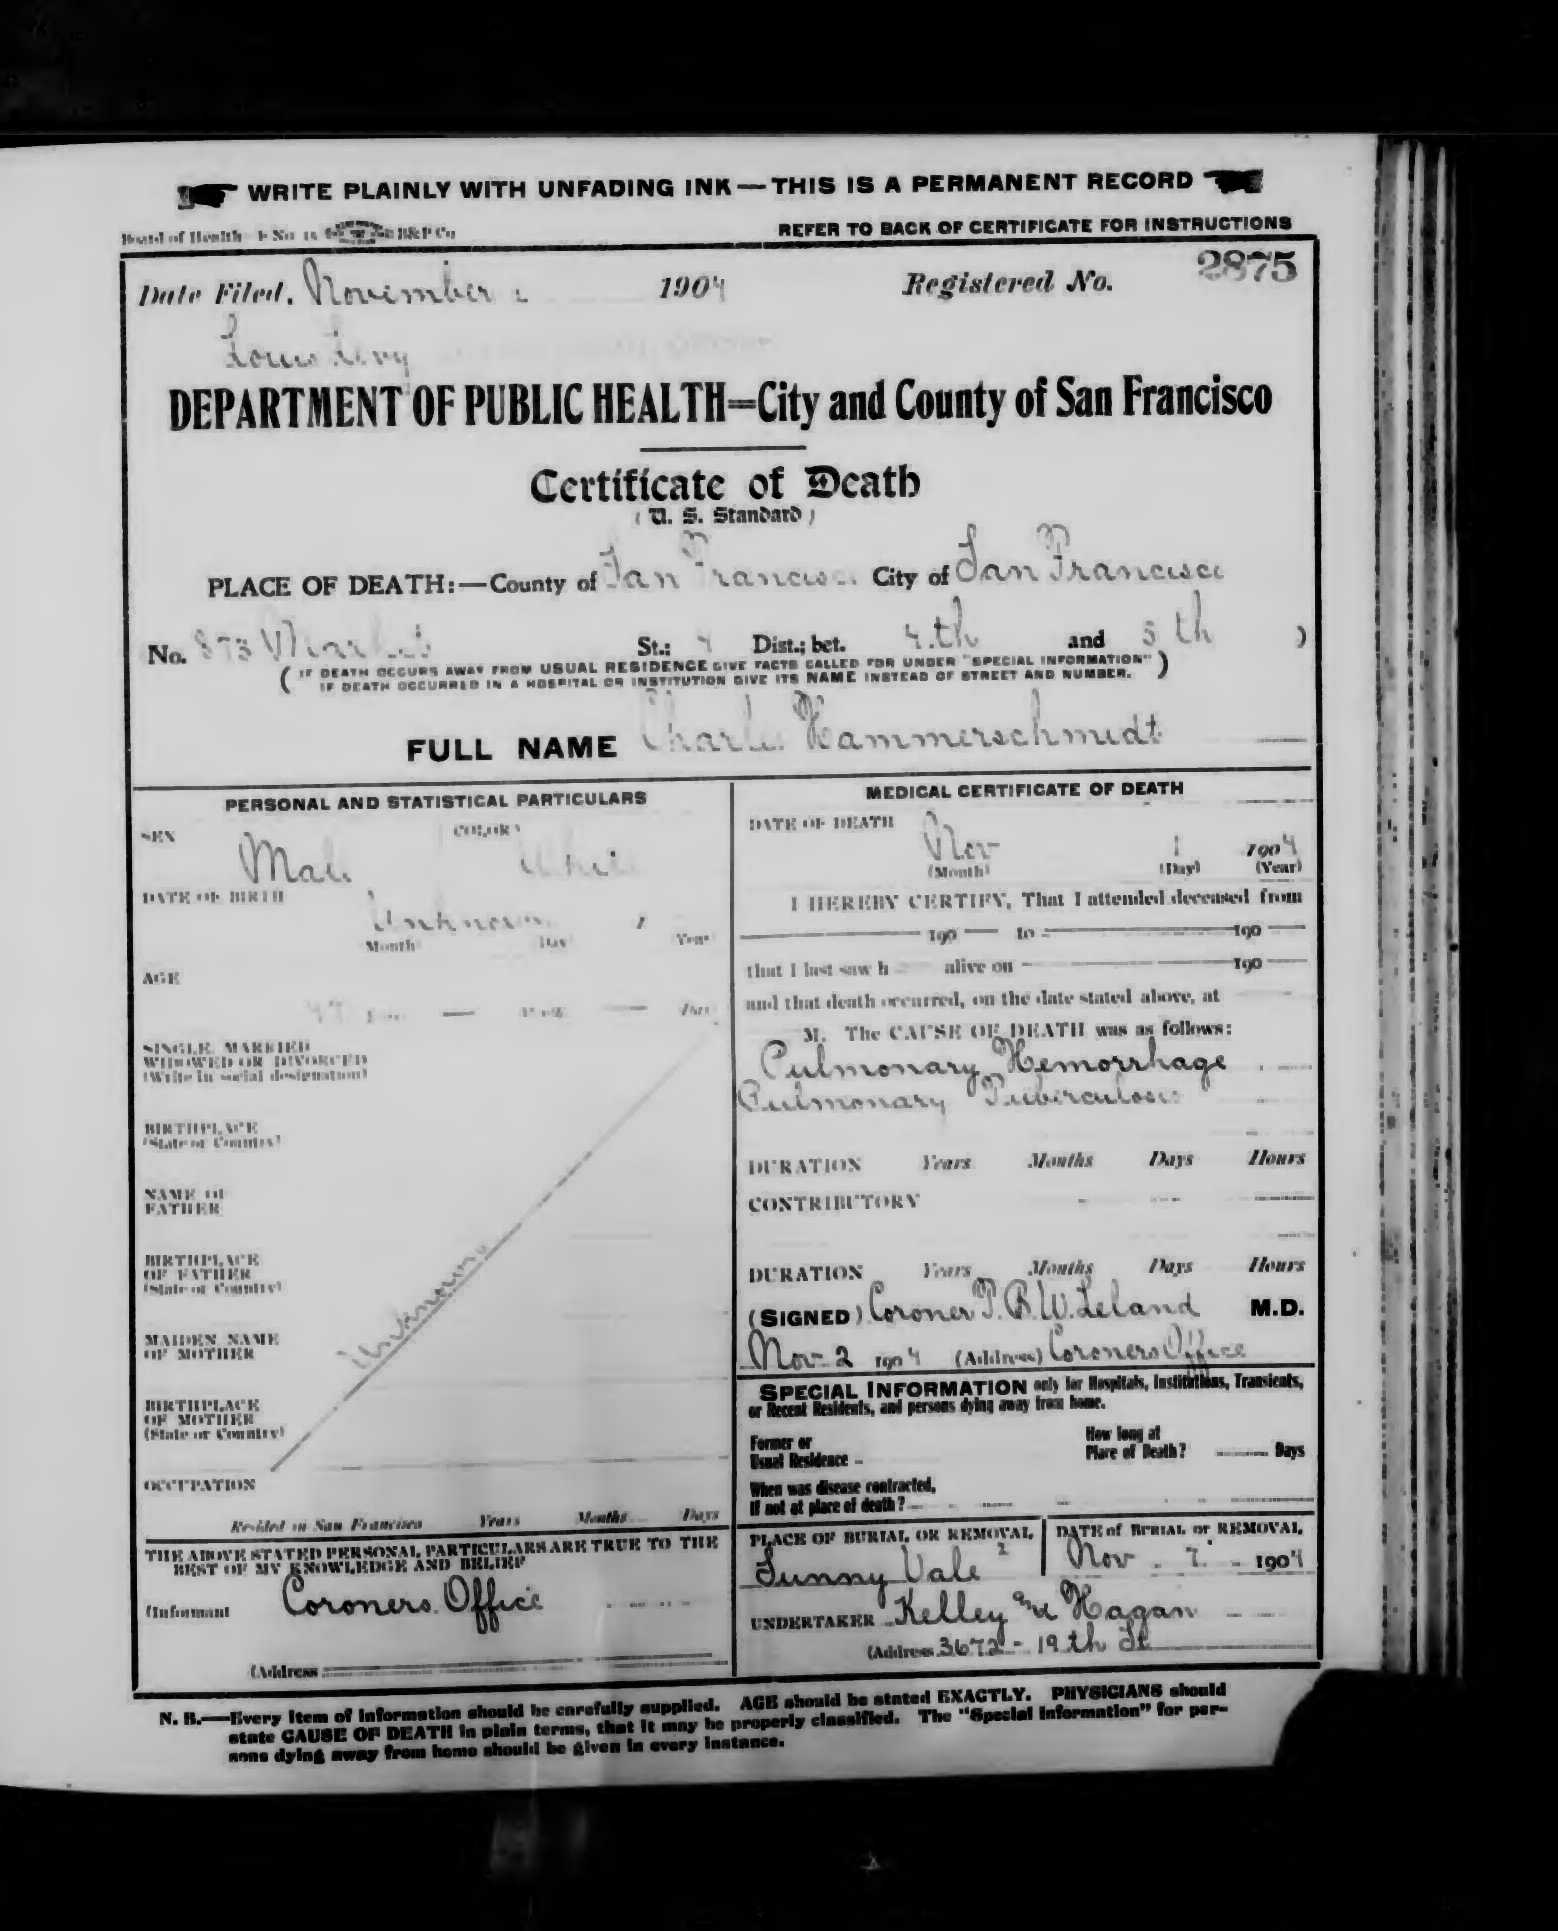 WRITE PLAINLY WITH UNFADING INK — THIS IS A PERMANENT RECORD
Board of Health F No 15 B&P Co
REFER TO BACK OF CERTIFICATE FOR INSTRUCTIONS
Date Filed, November 1904 Registered No. 2875
Louis Levy
DEPARTMENT OF PUBLIC HEALTH=City and County of San Francisco
Certificate of Death
(U. S. Standard)
PLACE OF DEATH:—County of San Francisco City of San Francisco
No. 873 Market St.; 4 Dist.; bet. 4.th and 5 th )
( IF DEATH OCCURS AWAY FROM USUAL RESIDENCE GIVE FACTS CALLED FOR UNDER "SPECIAL INFORMATION" )
IF DEATH OCCURRED IN A HOSPITAL OR INSTITUTION GIVE ITS NAME INSTEAD OF STREET AND NUMBER.
FULL NAME Charles Hammerschmidt
PERSONAL AND STATISTICAL PARTICULARS
SEX Male COLOR White
DATE OF BIRTH Unknown 1
Month Day Year
AGE
47 Years — Months — Days
SINGLE, MARRIED
WIDOWED OR DIVORCED
(Write in social designation)
BIRTHPLACE
(State or Country)
NAME OF
FATHER
BIRTHPLACE
OF FATHER
(State or Country)
Unknown
MAIDEN NAME
OF MOTHER
BIRTHPLACE
OF MOTHER
(State or Country)
OCCUPATION
Resided in San Francisco Years Months Days
THE ABOVE STATED PERSONAL PARTICULARS ARE TRUE TO THE
BEST OF MY KNOWLEDGE AND BELIEF
(Informant Coroners Office
(Address
MEDICAL CERTIFICATE OF DEATH
DATE OF DEATH
Nov 1 1904
(Month) (Day) (Year)
I HEREBY CERTIFY, That I attended deceased from
190 — to 190 —
that I last saw h alive on 190 —
and that death occurred, on the date stated above, at
M. The CAUSE OF DEATH was as follows:
Pulmonary Hemorrhage
Pulmonary Tuberculosis
DURATION Years Months Days Hours
CONTRIBUTORY
DURATION Years Months Days Hours
(SIGNED) Coroner T. B. W. Leland M.D.
Nov 2 1904 (Address) Coroners Office
SPECIAL INFORMATION only for Hospitals, Institutions, Transients,
or Recent Residents, and persons dying away from home.
Former or
Usual Residence
How long at
Place of Death? Days
When was disease contracted,
If not at place of death?
PLACE OF BURIAL OR REMOVAL
Sunny Vale
DATE of BURIAL or REMOVAL
Nov. 7. 1904
UNDERTAKER Kelley and Hagan
(Address 3672 - 19th St
N. B.—Every item of information should be carefully supplied. AGE should be stated EXACTLY. PHYSICIANS should
state CAUSE OF DEATH in plain terms, that it may be properly classified. The "Special Information" for per-
sons dying away from home should be given in every instance.